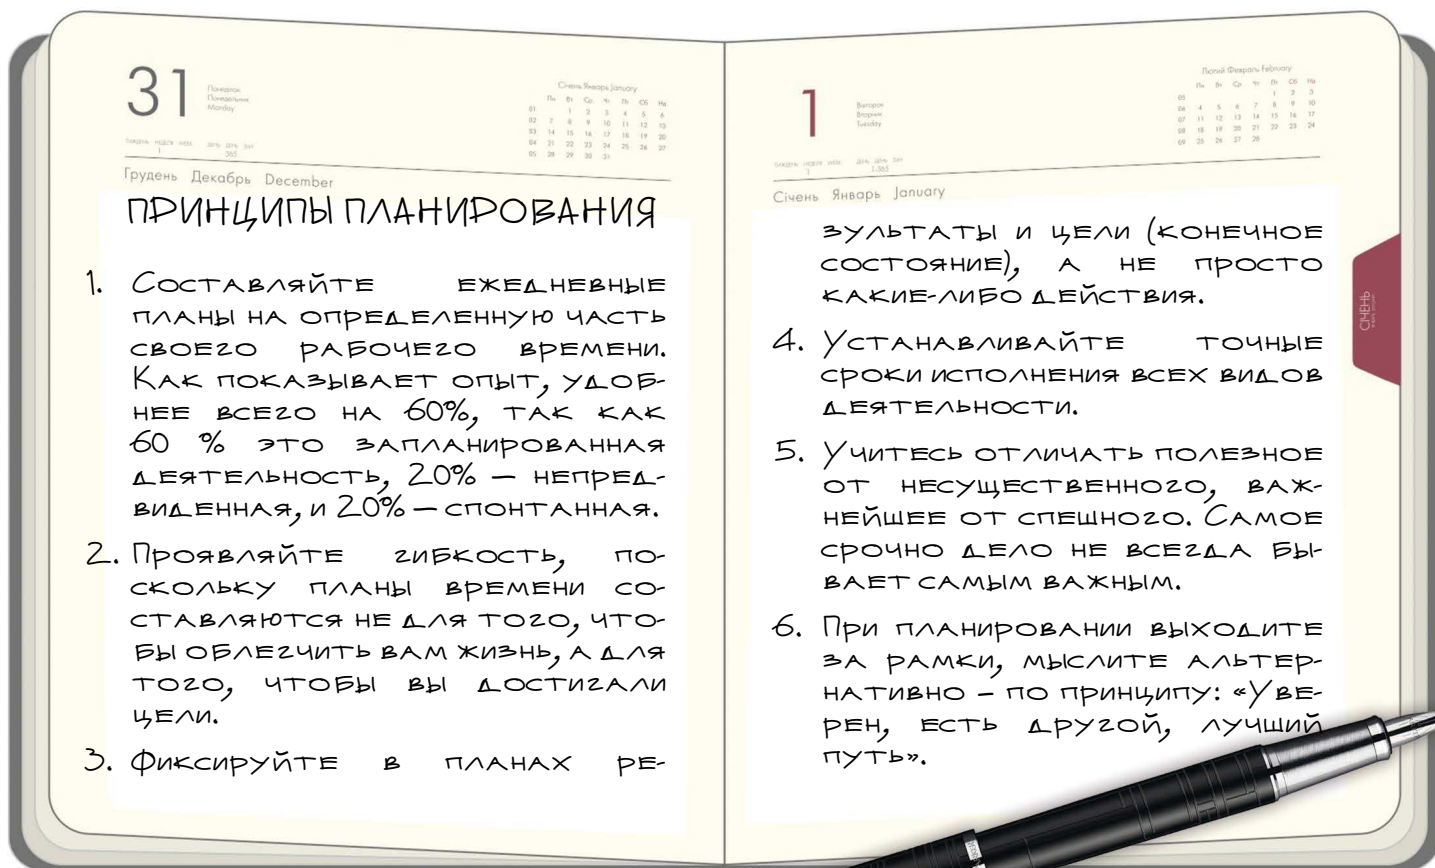 31
Понеділок
Понедельник
Monday
Січень Январь January
Пн Вт Ср Чт Пт Сб Нд
01 1 2 3 4 5 6
02 7 8 9 10 11 12 13
03 14 15 16 17 18 19 20
04 21 22 23 24 25 26 27
05 28 29 30 31
ТИЖДЕНЬ НЕДЕЛЯ WEEK ДЕНЬ ДЕНЬ DAY
1 365
Грудень Декабрь December
ПРИНЦИПЫ ПЛАНИРОВАНИЯ
1. Составляйте ежедневные
планы на определенную часть
своего рабочего времени.
Как показывает опыт, удоб-
нее всего на 60%, так как
60 % это запланированная
деятельность, 20% — непред-
виденная, и 20% — спонтанная.
2. Проявляйте гибкость, по-
скольку планы времени со-
ставляются не для того, что-
бы облегчить вам жизнь, а для
того, чтобы вы достигали
цели.
3. Фиксируйте в планах ре-
1
Вівторок
Вторник
Tuesday
Лютий Февраль February
Пн Вт Ср Чт Пт Сб Нд
05 1 2 3
06 4 5 6 7 8 9 10
07 11 12 13 14 15 16 17
08 18 19 20 21 22 23 24
09 25 26 27 28
ТИЖДЕНЬ НЕДЕЛЯ WEEK ДЕНЬ ДЕНЬ DAY
1 1-365
Січень Январь January
зультаты и цели (конечное
состояние), а не просто
какие-либо действия.
4. Устанавливайте точные
сроки исполнения всех видов
деятельности.
5. Учитесь отличать полезное
от несущественного, важ-
нейшее от спешного. Самое
срочно дело не всегда бы-
вает самым важным.
6. При планировании выходите
за рамки, мыслите альтер-
нативно – по принципу: «Уве-
рен, есть другой, лучший
путь».
СІЧЕНЬ